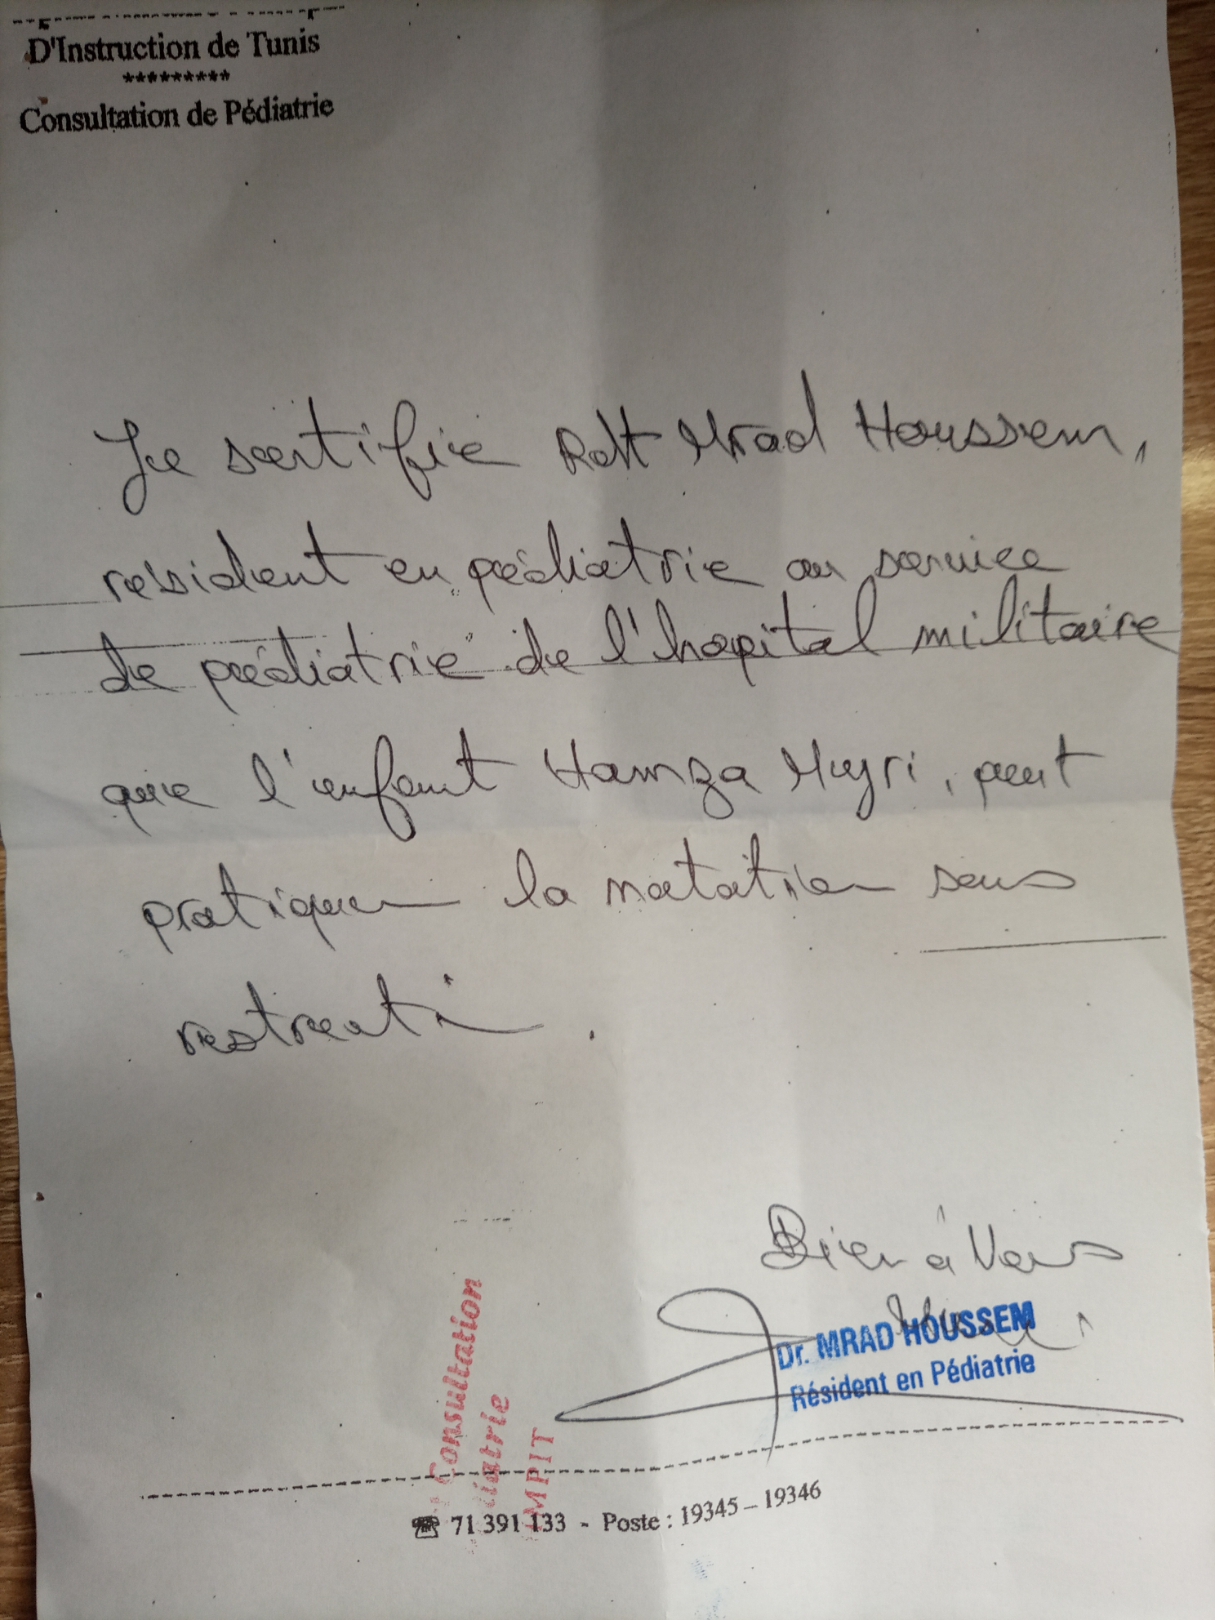 D'Instruction de Tunis
*********
Consultation de Pédiatrie
Je sertifie Rdt Mrad Houssem,
résident en pédiatrie au service
de pédiatrie de l'hopital militaire
que l'enfant Hamza, peut
pratiquer la natation sans
restreation.
Bien à Vous
Dr. MRAD HOUSSEM
Résident en Pédiatrie
Consultation
MPIT
☎ 71 391 133 - Poste : 19345 – 19346